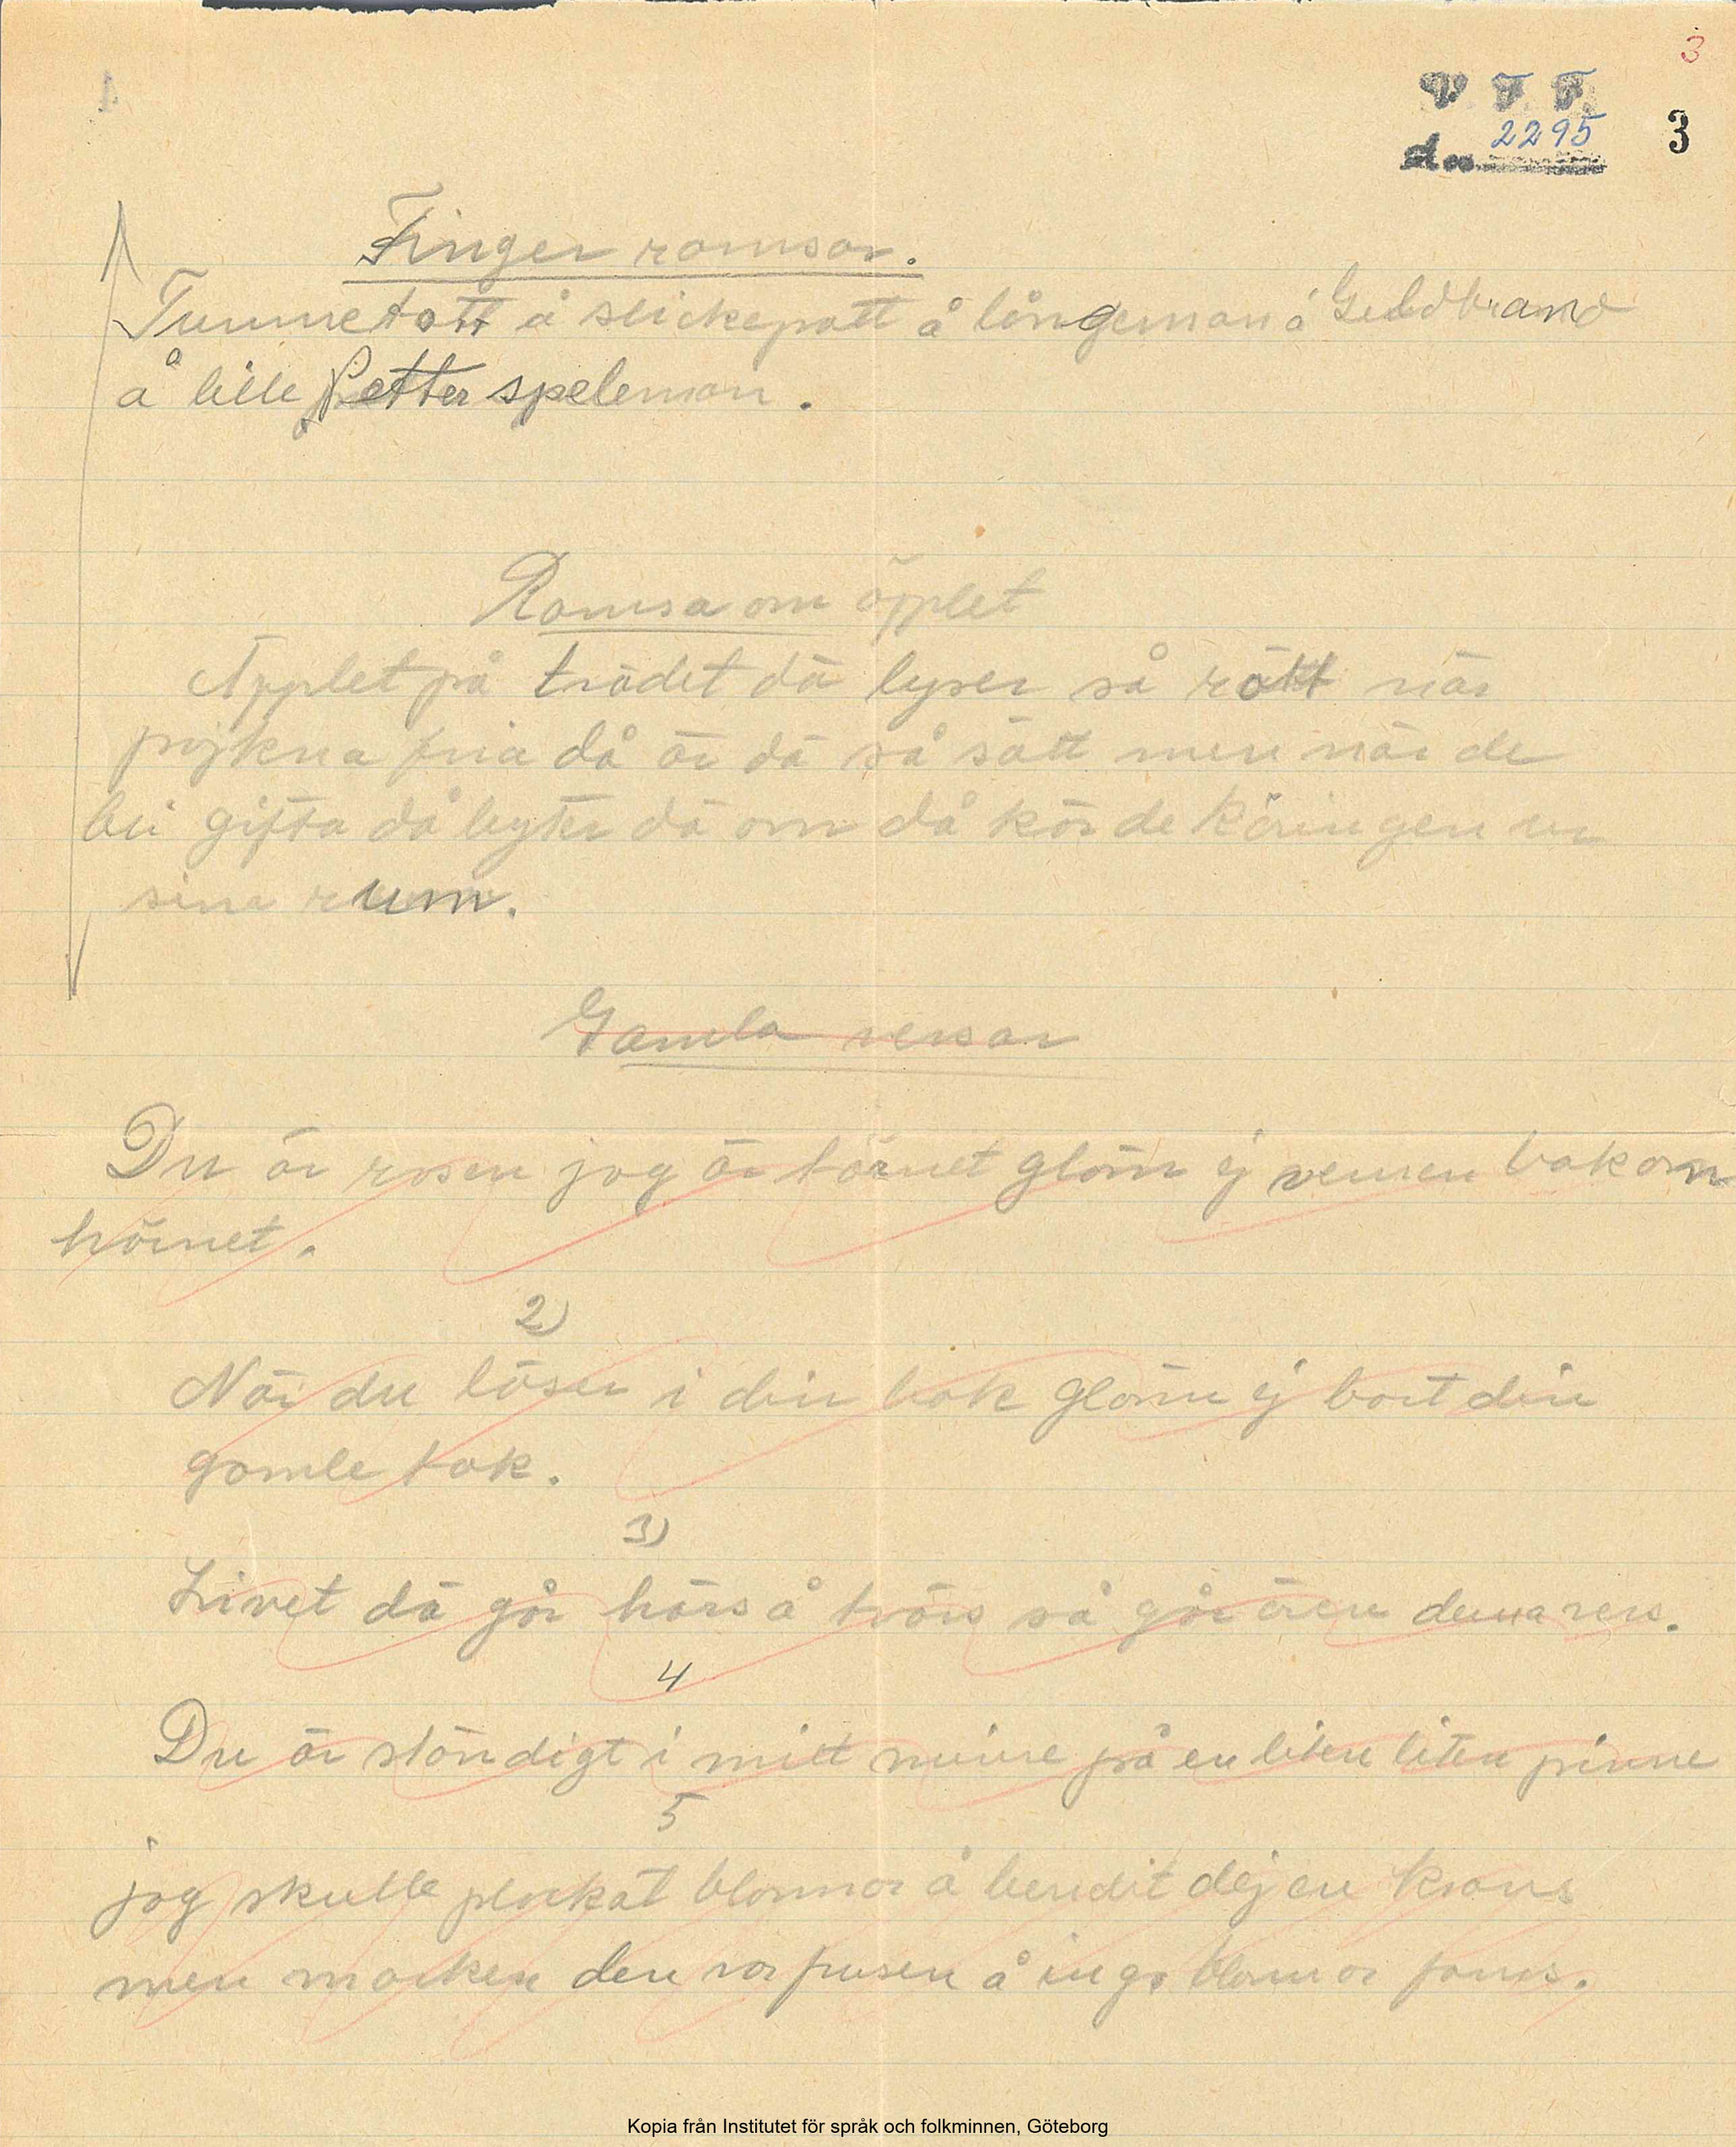 3
V F F
2295
3
Finger ramsor.
Tummetott å slickepott å långeman å Guldbrand
å lille Petter speleman.
Ramsa om äpplet
Äpplet på trädet dä lyser så rött när
pojkna fria då är dä så sött men när de
bli gifta då byter dä om då kör de käringen ur
sina rum.
Gamla versar
Du är rosen jag är törnet glöm ej vennen bakom
hörnet.
2)
När du läser i din bok glöm ej bort din
gamle tok.
3)
Livet dä går härs å tvärs så går även denna vers.
4
Du är ständigt i mitt minne på en liten liten pinne
5
jag skulle plockat blommor å bundit dej en krans
men marken den var frusen å inga blommor fanns.
Kopia från Institutet för språk och folkminnen, Göteborg